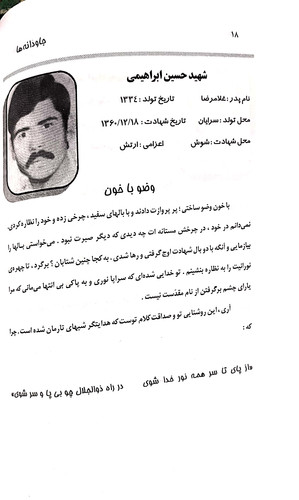 جاودانه‌ها
۱۸
شهید حسین ابراهیمی
نام پدر : غلامرضا تاریخ تولد : ۱۳۳۴
محل تولد : سرایان تاریخ شهادت : ۱۳۶۰/۱۲/۱۸
محل شهادت : شوش اعزامی : ارتش
وضو با خون
با خون وضو ساختی ؛ پر پروازت دادند و با بالهای سفید ، چرخی زده و خود را نظاره کردی.
نمی‌دانم در خود ، در چرخش مستانه ات چه دیدی که دیگر صبرت نبود . می‌خواستی بالها را
بیازمایی و آنگه با دو بال شهادت اوج گرفتی و رها شدی . به کجا چنین شتابان ؟ برگرد ، تا چهره‌ی
نورانیت را به نظاره بنشینم . تو خدایی شده‌ای که سراپا نوری و به پاکی بی انتها می‌مانی که مرا
یارای چشم برگرفتن از نام مقدّست نیست .
آری ، این روشنایی تو و صداقت کلام توست که هدایتگر شبهای تارمان شده است. چرا
که :
«از پای تا سر همه نور خدا شوی در راه ذوالجلال چو بی پا و سر شوی»